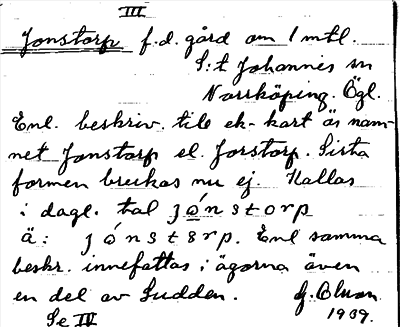 III
Jonstorp f.d. gård om 1 mtl.
S:t Johannes sn
Norrköping. Ögl.
Enl. beskriv. till ek-kart äs nam-
net Jonstorp el. Jorstorp. Sista
formen brukas nu ej. Kallas
i dagl. tal jónstorp
ä: jónstɜrp. Enl samma
beskr. innefattas i ägorna även
en del av Sudden. G.
Se IV 1939.